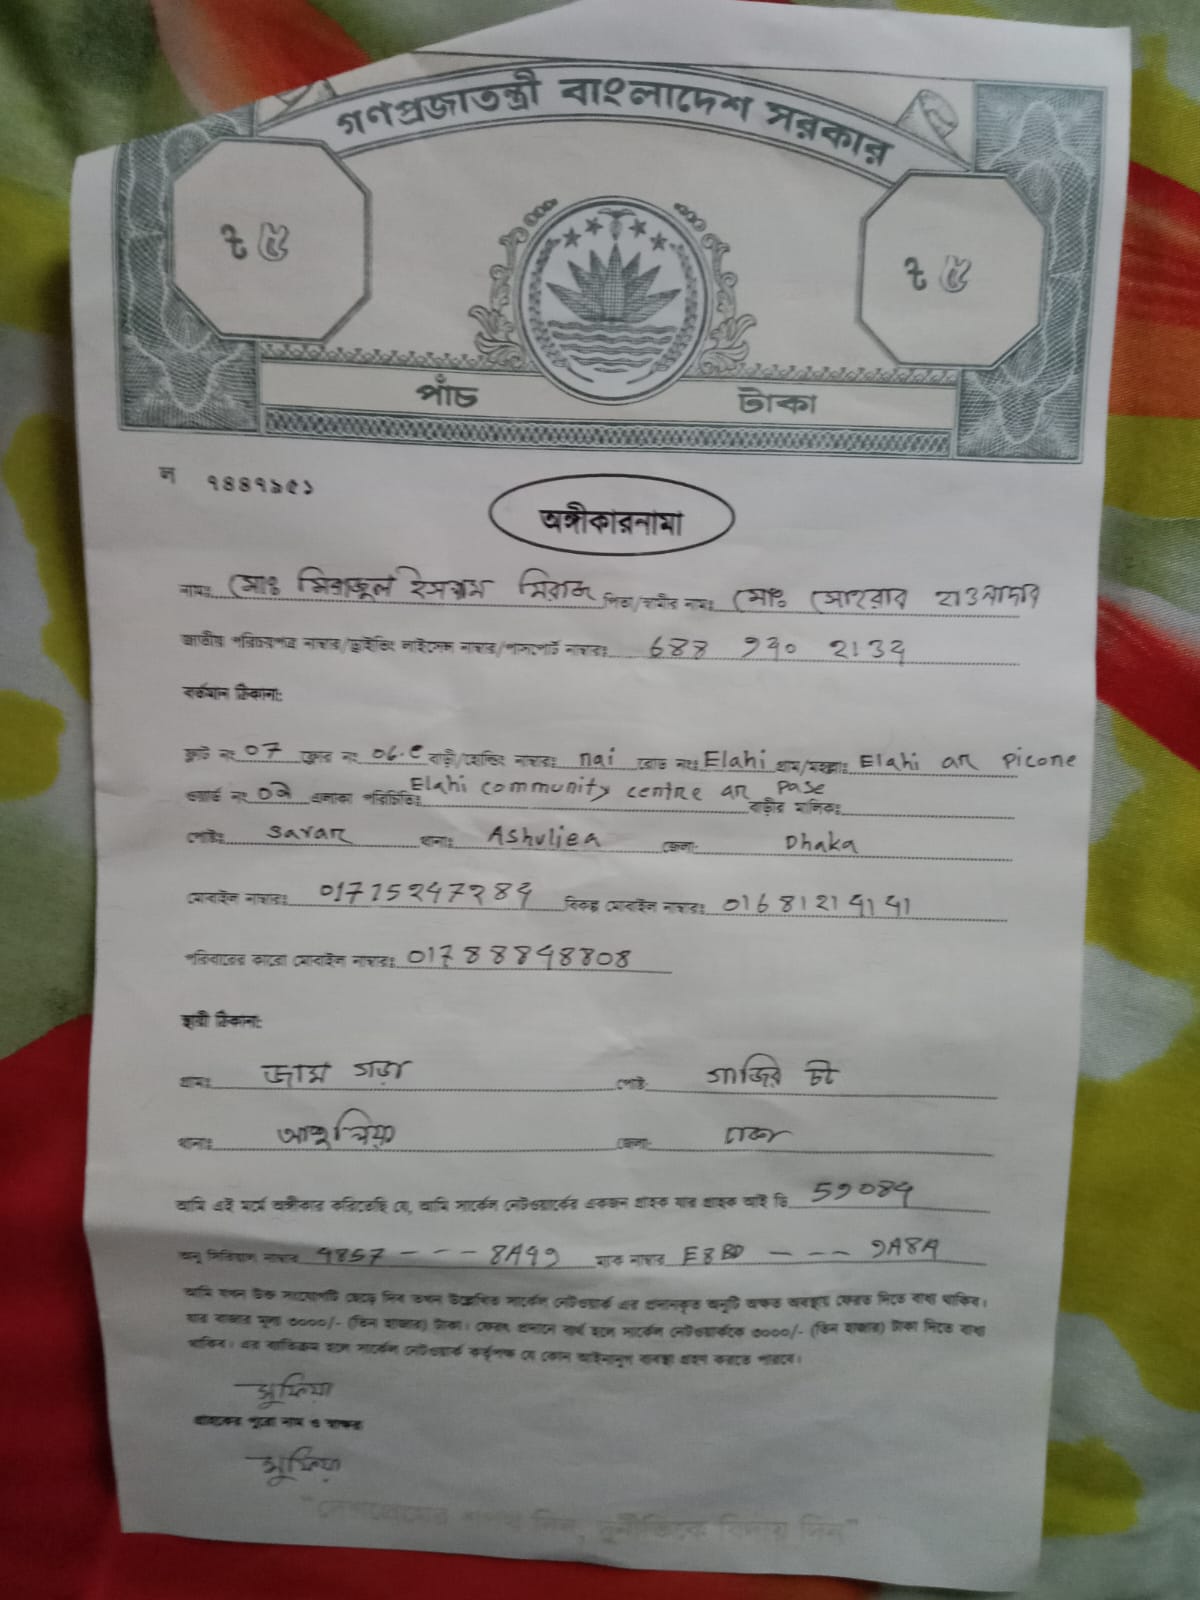 গণপ্রজাতন্ত্রী বাংলাদেশ সরকার
৳ ৫ ৳ ৫
পাঁচ টাকা
ন ৭৪৪৭৯৫১
অঙ্গীকারনামা
নামঃ মোঃ মিরাজুল ইসলাম মিরাজ পিতা/স্বামীর নামঃ মোঃ সোহরাব হাওলাদার
জাতীয় পরিচয়পত্র নাম্বার/ড্রাইভিং লাইসেন্স নাম্বার/পাসপোর্ট নাম্বারঃ 688
বর্তমান ঠিকানা:
ফ্লাট নং 07 ফ্লোর নং 06.c বাড়ী/হোল্ডিং নাম্বারঃ nai রোড নংঃ Elahi গ্রাম/মহল্লাঃ Elahi ar picone
ওয়ার্ড নং এলাকা পরিচিতিঃ Elahi community centre ar pase বাড়ীর মালিকঃ
পোষ্টঃ savar থানাঃ Ashuliea জেলা: Dhaka
মোবাইল নাম্বারঃ বিকল্প মোবাইল নাম্বারঃ
পরিবারের কারো মোবাইল নাম্বারঃ
স্থায়ী ঠিকানা:
গ্রামঃ জাম গড়া পোষ্ট: গাজির চট
থানাঃ আশুলিয়া জেলা: ঢাকা
আমি এই মর্মে অঙ্গীকার করিতেছি যে, আমি সার্কেল নেটওয়ার্কের একজন গ্রাহক যার গ্রাহক আই ডি
অনু সিরিয়াল নাম্বার ম্যাক নাম্বার
আমি যখন উক্ত সংযোগটি ছেড়ে দিব তখন উল্লেখিত সার্কেল নেটওয়ার্ক এর প্রদানকৃত অনুটি অক্ষত অবস্থায় ফেরত দিতে বাধ্য থাকিব।
যার বাজার মূল্য ৩০০০/- (তিন হাজার) টাকা। ফেরৎ প্রদানে ব্যর্থ হলে সার্কেল নেটওয়ার্ককে ৩০০০/- (তিন হাজার) টাকা দিতে বাধ্য
থাকিব। এর ব্যতিক্রম হলে সার্কেল নেটওয়ার্ক কর্তৃপক্ষ যে কোন আইনানুগ ব্যবস্থা গ্রহণ করতে পারবে।
সুফিয়া
গ্রাহকের পুরো নাম ও স্বাক্ষর
সুফিয়া
"দেশপ্রেমের শপথ নিন, দুর্নীতিকে বিদায় দিন"